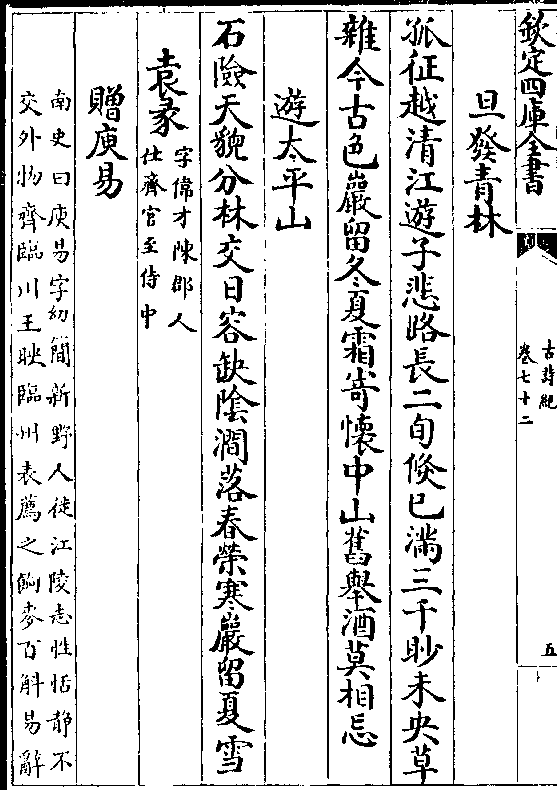 欽定四庫全書
古詩紀
卷七十二
五
旦發青林
孤征越清江遊子悲路長二旬倐已滿三千眇未央草
雜今古色巖留冬夏霜寄懷中山舊舉酒莫相忘
遊太平山
石險天貌分林交日容缺陰澗落春榮寒巖留夏雪
袁彖
字偉才陳郡人
仕齊官至侍中
贈庾易
南史曰庾易字幼簡新野人徙江陵志性恬静不
交外物齊臨川王映臨州表薦之餉麥百斛易辭